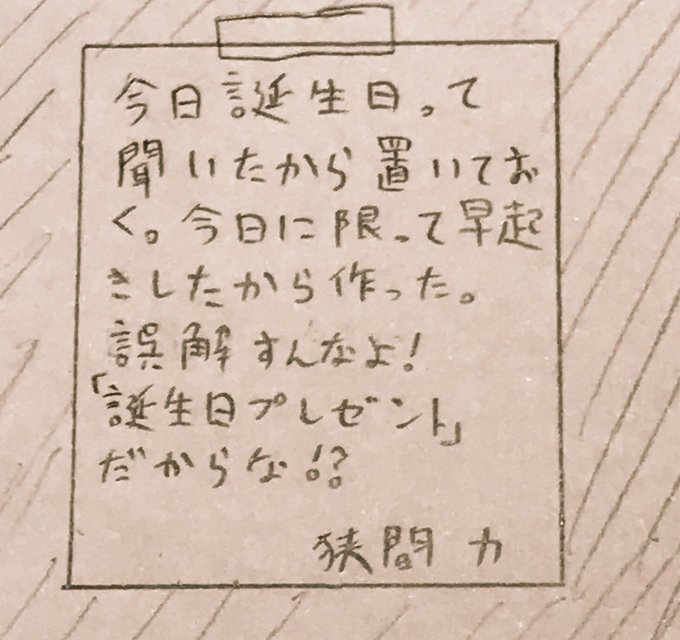 今日誕生日って
聞いたから置いてお
く。今日に限って早起
きしたから作った。
誤解すんなよ!
「誕生日プレゼント」
だからな!?
狭間 力